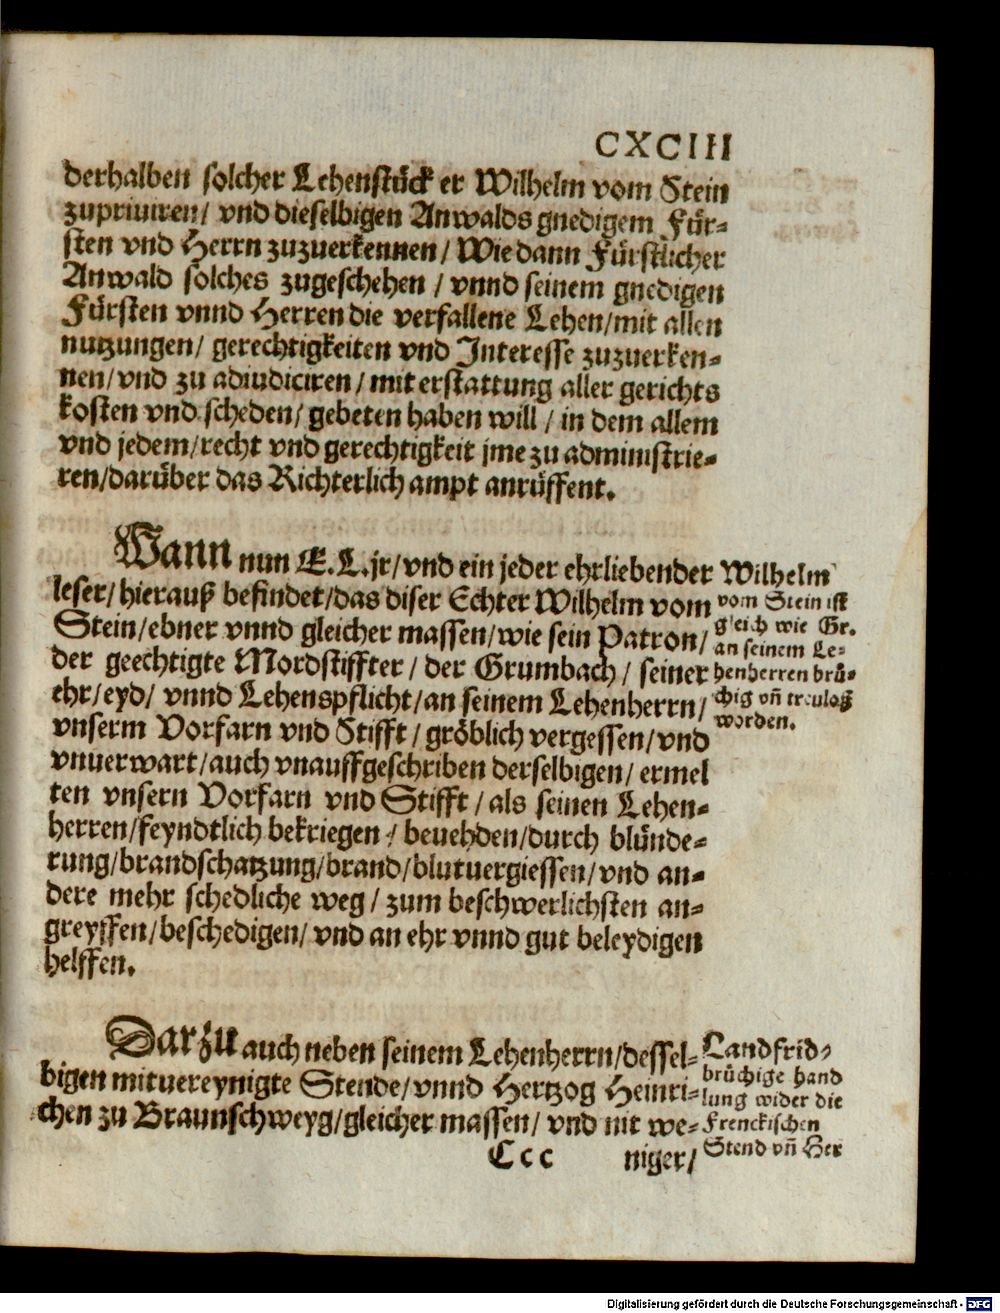 CXCIII
derhalben solcher Lehenstück er Wilhelm vom Stein
zupriuiren/ vnd dieselbigen Anwalds gnedigem Für-
sten vnd Herrn zuzuerkennen/ Wie dann Fürstlicher
Anwald solches zugeschehen / vnnd seinem gnedigen
Fürsten vnnd Herren die verfallene Lehen/mit allen
nutzungen/ gerechtigkeiten vnd Interesse zuzuerken-
nen/vnd zu adiudiciren/ mit erstattung aller gerichts
kosten vnd scheden/ gebeten haben will / in dem allem
vnd jedem/recht vnd gerechtigkeit jme zu administrie-
ren/darüber das Richterlich ampt anrüffent.
Wann nun E.L.jr/vnd ein jeder ehrliebender
leser/hierauß befindet/das diser Echter Wilhelm vom
Stein/ebner vnnd gleicher massen/wie sein Patron/
der geechtigte Mordstiffter/ der Grumbach/ seiner
ehr/eyd/ vnnd Lehenspflicht/an seinem Lehenherrn/
vnserm Vorfarn vnd Stifft/ gröblich vergessen/vnd
vnuerwart/auch vnauffgeschriben derselbigen/ ermel
ten vnsern Vorfarn vnd Stifft/als seinen Lehen-
herren/feyndtlich bekriegen/ beuehden/durch blünde-
rung/brandschatzung/brand/blutuergiessen/vnd an-
dere mehr schedliche weg/ zum beschwerlichsten an-
greyffen/beschedigen/ vnd an ehr vnnd gut beleydigen
helffen.
Wilhelm
vom Stein ist
gleich wie Gr.
an seinem Le-
henherren brü-
chig vn̄ treuloß
worden.
Darzu auch neben seinem Lehenherrn/dessel-
bigen mituereynigte Stende/vnnd Hertzog Heinri-
chen zu Braunschweyg/gleicher massen/ vnd nit we-
Landfrid-
brüchige hand
lung wider die
Frenckischen
Stend vn̄ Her
Ccc niger/
Digitalisierung gefördert durch die Deutsche Forschungsgemeinschaft - DFG